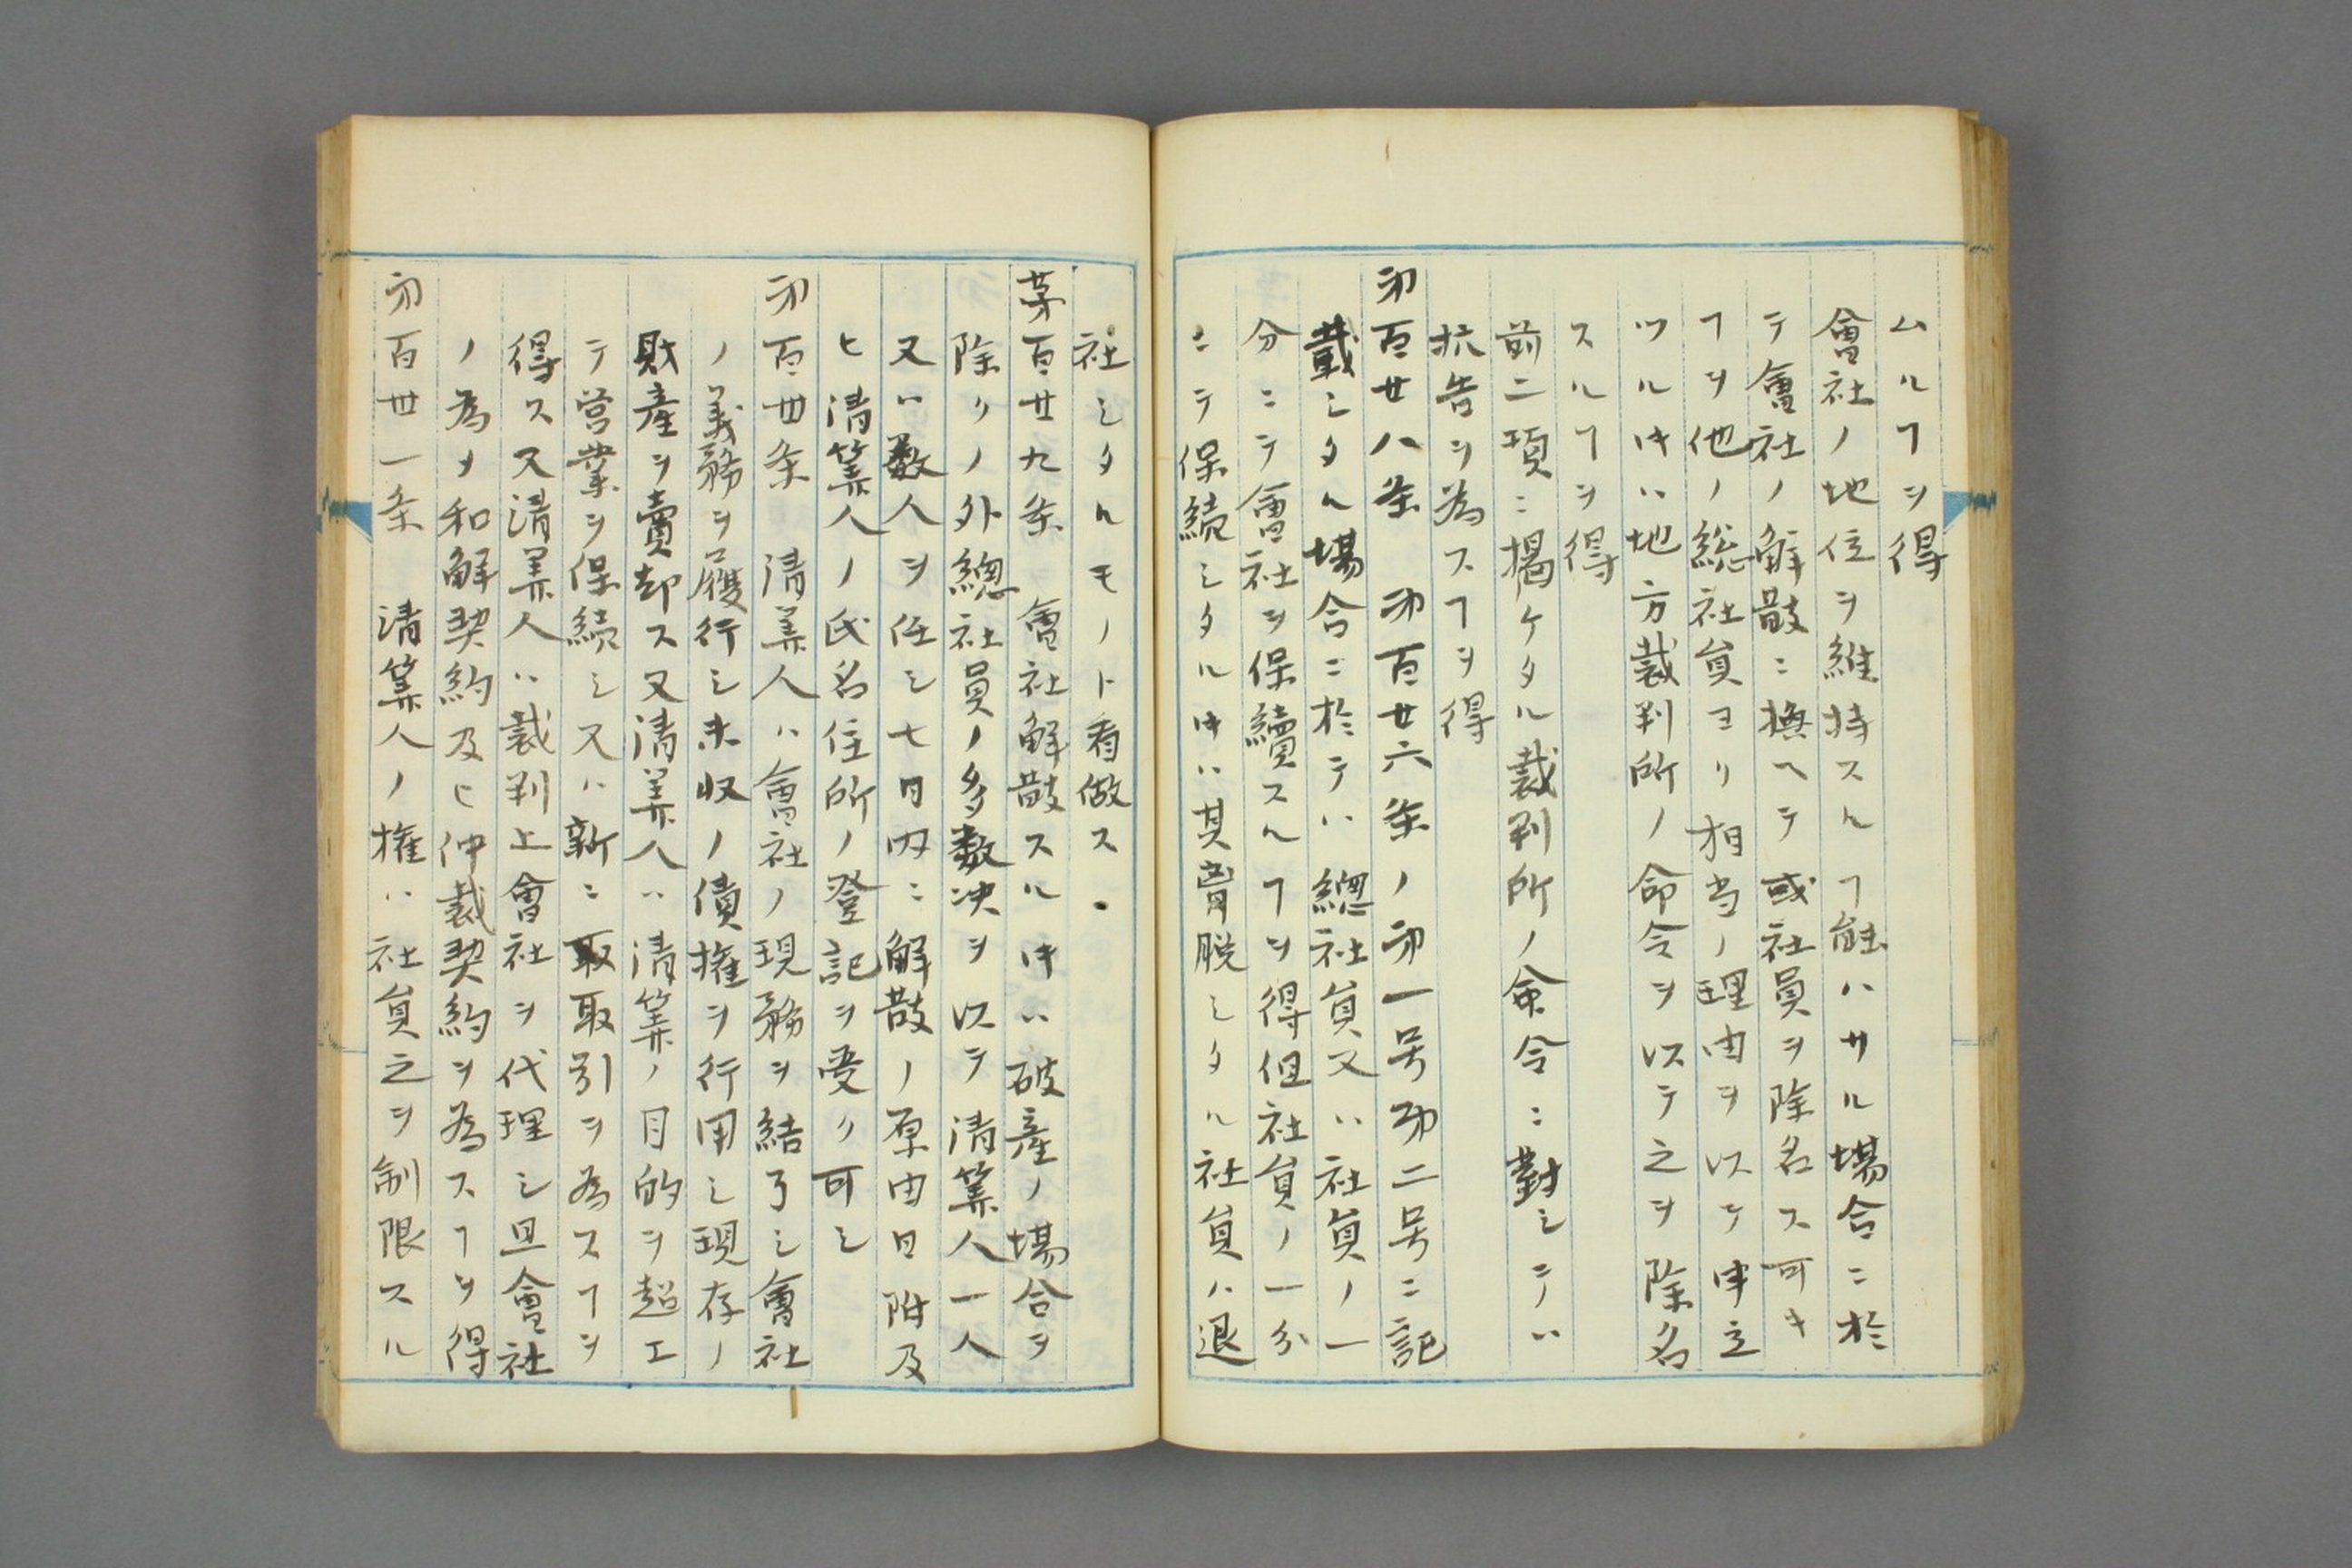 ムルヿヲ得
會社ノ地位ヲ維持スルヿ能ハサル場合ニ於
テ會社ノ解散ニ換ヘテ或社員ヲ除名ス可キ
ヿヲ他ノ総社員ヨリ相当ノ理由ヲ以テ申立
ツル𪜈ハ地方裁判所ノ命令ヲ以テ之ヲ除名
スルヿヲ得
前二項ニ揭ケタル裁判所ノ命令ニ對シテハ
抗告ヲ為スヿヲ得
㐧百廿八条 㐧百廿六条ノ㐧一号㐧二号ニ記
載シタル場合ニ於テハ總社員又ハ社員ノ一
分ニテ會社ヲ保續スルヿヲ得但社員ノ一分
ニテ保続シタル𪜈ハ其脱シタル社員ハ退
社シタルモノト看做ス
苐百廿九条 會社解散スル𪜈ハ破産ノ場合ヲ
除クノ外總社員ノ多数决ヲ以テ清筭人一人
又ハ数人ヲ任シ七日内ニ解散ノ原由日附及
ヒ清筭人ノ氏名住所ノ登記ヲ受ク可シ
㐧百卅条 清筭人ハ會社ノ現務ヲ結了シ會社
ノ義務ヲ履行シ未収ノ債権ヲ行用シ現存ノ
財産ヲ賣却ス又清筭人ハ清筭ノ目的ヲ超エ
テ営業ヲ保続シ又ハ新ニ取取引ヲ為スヿヲ
得ス又清筭人ハ裁判上會社ヲ代理シ且會社
ノ為メ和解契約及ヒ仲裁契約ヲ為スヿヲ得
㐧百卅一条 清筭人ノ権ハ社員之ヲ制限スル